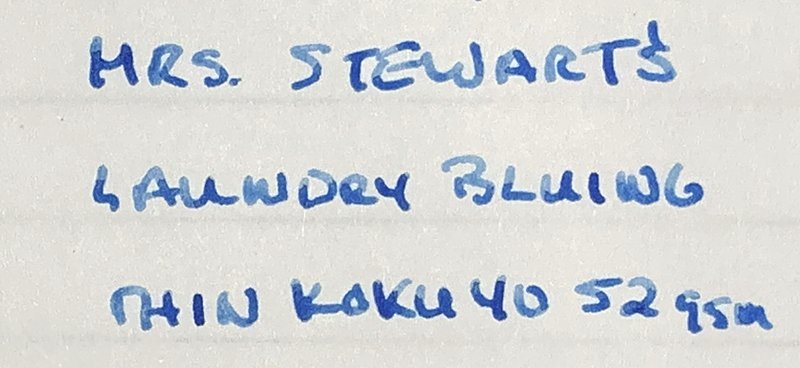 MRS. STEWART'S
LAUNDRY BLUING
THIN KOKUYO 52 gsm